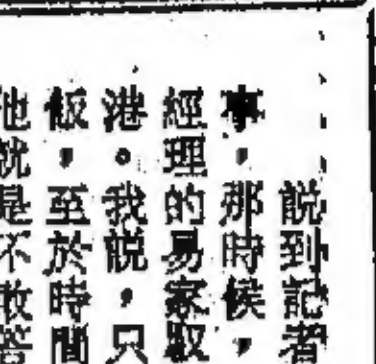 說到記者
事，那時候，
經理的易家馭
港。我說，只
飯，至於時間
他就是不敢答